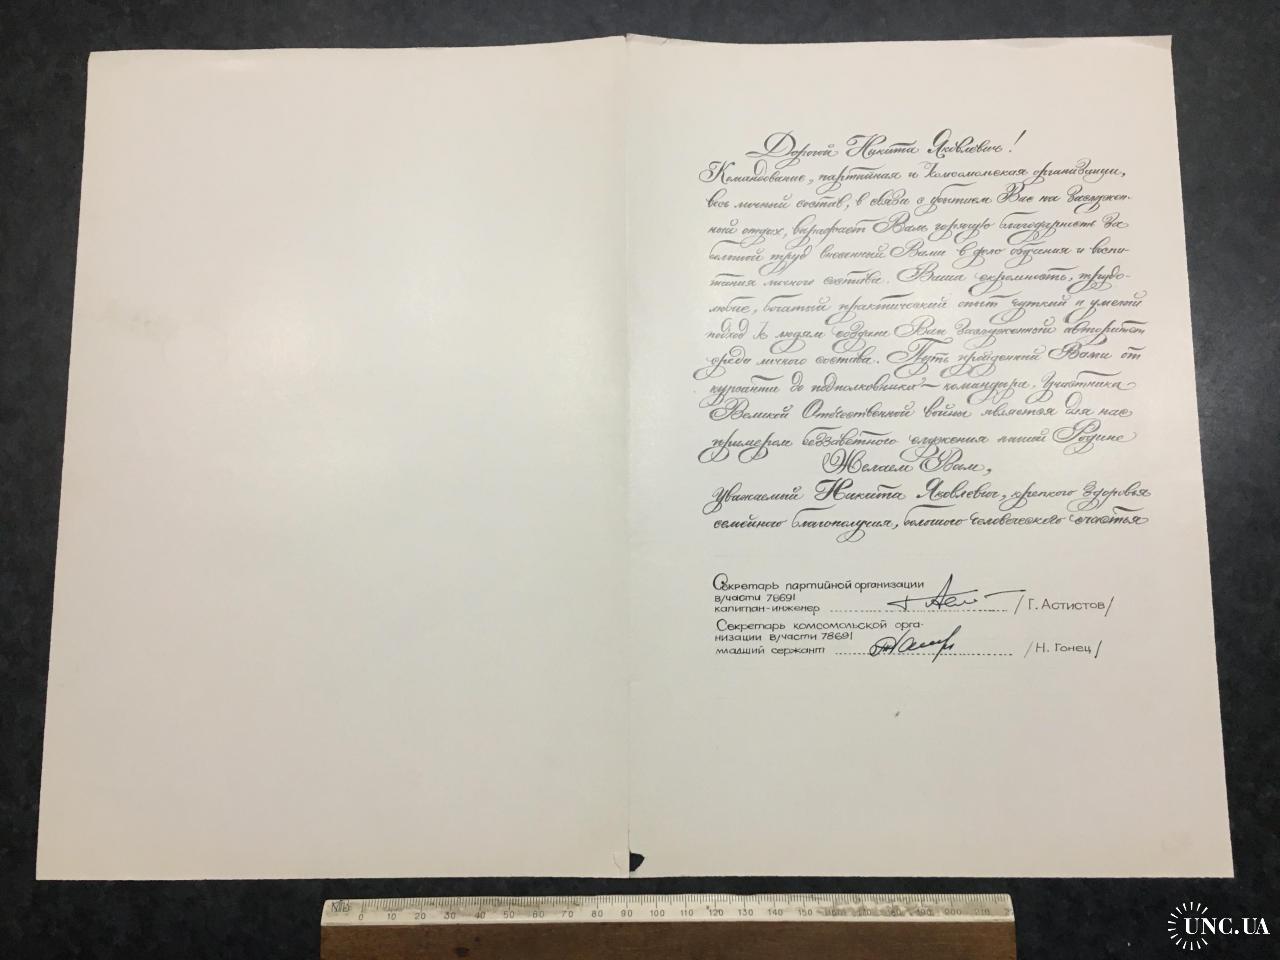 Дорогой Никита Яковлевич!
Командование, партийная и комсомольская организации,
весь личный состав, в связи с убытием Вас на заслужен-
ный отдых, выражает Вам горячую благодарность за
большой труд внесенный Вами в дело обучения и воспи-
тания личного состава. Ваша скромность, трудо-
любие, богатый практический опыт чуткий и умелый
подход к людям создали Вам заслуженный авторитет
среди личного состава. Путь пройденный Вами от
курсанта до подполковника — командира, участника
Великой Отечественной войны является для нас
примером беззаветного служения нашей Родине
Желаем Вам,
уважаемый Никита Яковлевич, крепкого здоровья
семейного благополучия, большого человеческого счастья
Секретарь партийной организации
в/части 78691
капитан-инженер /Г. Астистов/
Секретарь комсомольской орга-
низации в/части 78691
младший сержант /Н. Гонец/
0 10 20 30 40 50 60 70 80 90 100 110 120 130 140 150 160 170 180 190 200 210
UNC.UA